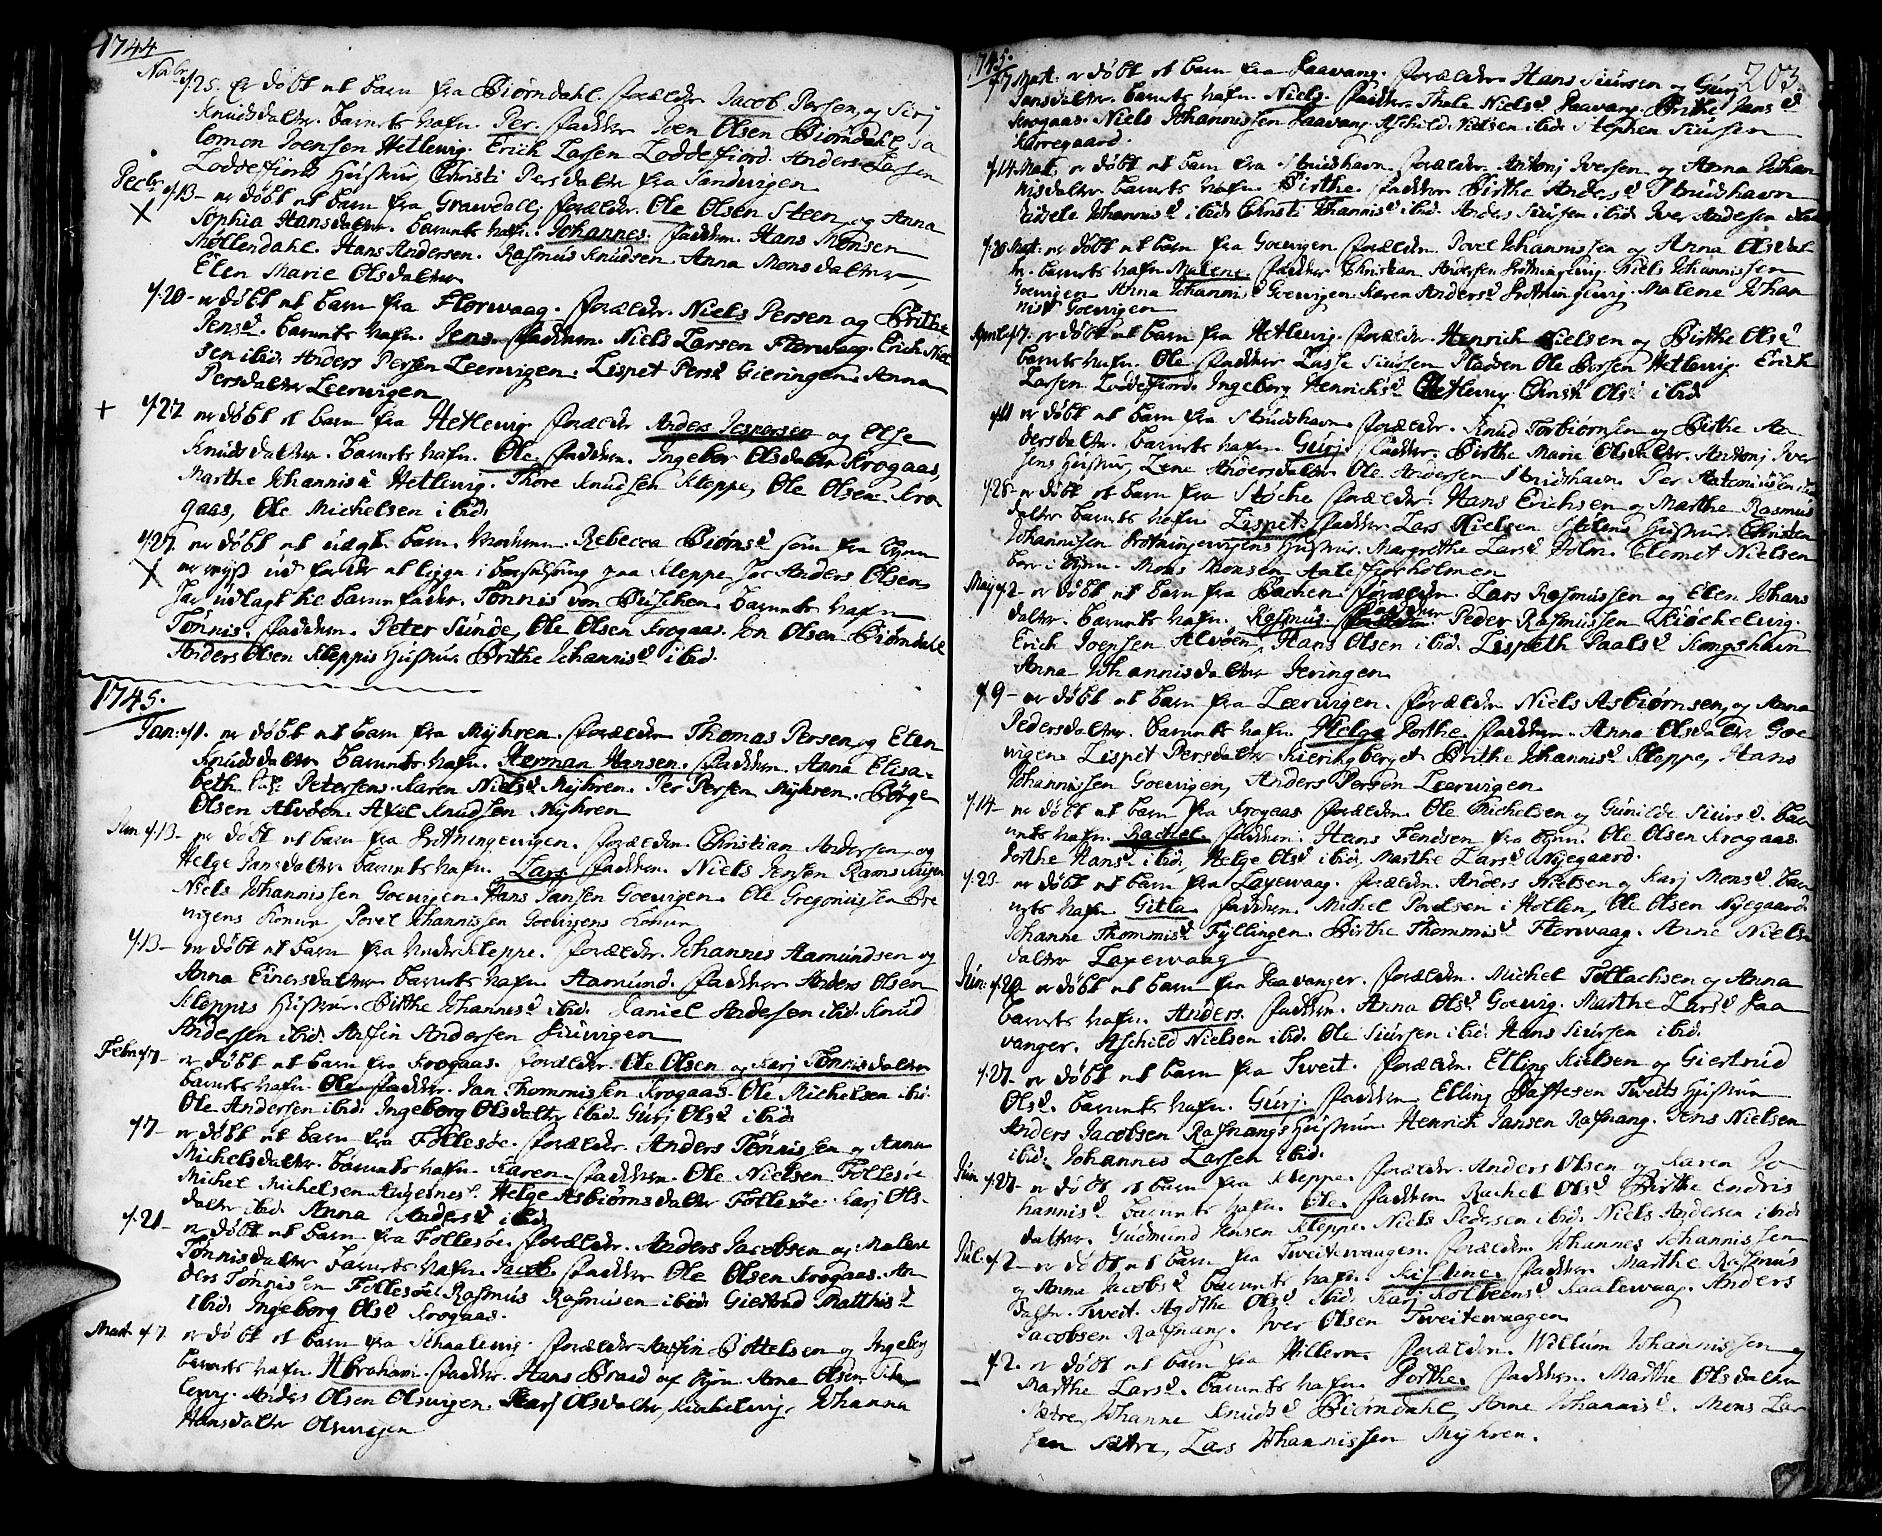 1744
Novbr d. 25. er døbt et barn fra Biørndahl. forældre Jacob Persen og Sirj
Knudsdatter. barnets nafn. Per. faddere Joen Olsen Biørndahl Sa
lomon Joensen Hetlevig. Erich Larsen Loddefiord. Anders Larsen
Loddefiord Hustrue Christi Persdatter fra Sandvigen
Decbr d. 13- er døbt et barn fra Gravdall, forældre. Ole Olsen Steen og Anna
Sophia Hansdatter. barnets nafn. Johannes. faddere. Hans Monsen
Møllendahl. Hans Andersen. Rasmus Knudsen. Anna Monsdatter,
Elen Marie Olsdatter
d. 20- er døbt et barn fra Florvaag. forældre. Niels Persen og Brithe
Jensd. barnets nafn. Jens. faddere. Niels Larsen Florvaag. Erich
sen ibid. Anders Persen Leervigen. Lispet Persd Gieringen. Anna
Persdatter Leervigen
d. 27 er døbt et barn fra Hetlevig forældre Anders Jespersen og Else
Knudsdatter. barnets nafn. Ole. faddere. Ingebor Olsdatter Krogaas,
Marthe Johannisd Hetlevig. Thore Knudsen Kleppe, Ole Olsen Kro
gaas, Ole Michelsen ibid.
d. 27 er døbt et uægt. barn. Moderen. Rebecca Biørnsd som fra Byen
er vist ud for at ligge i barselseng paa Kleppe hos Anders Olsen
har udlagt til barnefader. Tønnis von Büschen. barnets nafn
Tønnis. faddere. Peter Sunde, Ole Olsen Krogaas. Jon Olsen Biørndahl
Anders Olsen Kleppis Hustrue Brithe Johannisd ibid.
1745.
Jan: d. 1. er døbt et barn fra Myhren. forældre Thomas Persen og Elen
Knudsdatter barnets nafn. Herman Hansen. faddere. Anna Elisa-
beth Petersens. Karen Nielsd Myhren. Per Persen Myhren. Børge
Olsen Alvøen. Axel Knudsen Myhren
Jan d. 13- er døbt et barn fra Brotningevigen. forældre. Christian Andersen og
Helge Jansdatter. barnets nafn. Lars faddere. Niels Jensen Ramsvigen
Niels Johannissen Goevigen. Hans Jansen Goevigen. Ole Gregoriussen Bre
vigens Konne, Povel Johannissen Goevigens Konne
d. 13- er døbt et barn fra Underkleppe. forældre. Johannes Aamundsen og
Anna Einersdatter barnets nafn Aamund. faddere Anders Olsen
Kleppis Hustrue. Birthe Johannesd ibid. Daniel Andersen ibid. Knud
Andersen ibid. Anfin Andersen
Febr. d. 7- er døbt et barn fra Krogaas. forældre. Ole Olsen og Karj Tønnisdatter
barnets nafn. Ole faddere. Jan Thommissen Krogaas. Ole Michelsen ibi.
Ole Andersen ibid. Ingeborg Olsdatter ibid. Gurj Olsd ibid
d. 7- er døbt et barn fra Follesøe. forældre. Anders Tønnissen og Anna
Michelsdatter. barnets nafn. Karen. faddere. Ole Nielsen Follesøe
Michel Michelsen Augesnes. Helge Asbiørnsdatter Follesøe. Karj Ols-
datter ibid. Anna Andersd ibid
d. 21- er døbt et barn fra Follesøe. forældre. Anders Jacobsen og Malene
Tønnisdatter barnets nafn. Jacob. faddere Ole Olsen Krogaas. An
ders Tønnissen Follesøe. Rasmus Rasmusen ibid. Giertrud Matthisd
ibid. Ingeborg Olsd Krogaas.
Mart. d. 7. er døbt et barn fra Schaalevig. forældre Anfin Bottelsen og Ingeborg
barnets nafn Abraham. faddere. Hans Braad af Byen Arne Olsen
levig. Anders Olsen Olsvigen. Karj Olsdatter, Kinkelevig. Johanna
Hansdatter Olsvigen
1745.
203.
d. 7 Mart. er døbt et barn fra Haavang. forældre. Hans Siursen og Gurj
Jansdatter. barnets nafn. Niels. faddere. Thale Nielsd Haavang. Brithe Jansd
Krogaas. Niels Johannissen Haavang. Aschild Nielsen ibid. Stephen Siursen
Kirregaard.
d. 14 Mat: er døbt et barn fra Strudshavn. forældre. Antonj Iversen og Anna Johan
nisdatter. barnets nafn. Birthe. faddere. Birthe Andersd Strudshavn
Johannisd ibid. Christi Johannisd ibid. Anders Siursen ibid. Iver Andersen ibid
d. 28 Mat: er døbt et barn fra Goevigen. forældre. Povel Johannissen og Anna Olsdat
ter. barnets nafn. Malene. faddere Christian Andersen Brotningevig. Niels Johannissen
Goevigen. Anna Johannisd Goevigen. Karen Andersd Brotningevig. Malene Johan
nisd Goevigen
April d. 7. er døbt et barn fra Hetlevig. forældre. Henrich Nielsen og Birthe Olsd
barnets nafn. Ole. faddere Lasse Siursen Pladsen Ole Persen Hetlevig. Erich
Larsen. Loddefiord. Ingeborg Henrichsd Hetlevig. Christi Olsd ibid
d. 11 er døbt et barn fra Strudshavn. forældre. Knud Torbiørnsen og Birthe An
dersdatter. barnets nafn. Gurj. faddere. Birthe Marie Olsdatter. Antonj Iver
sens Hustrue, Lene Andersdatter. Ole Andersen Strudshavn. Per Antoniussen ibid
d. 25- er døbt et barn fra Støche forældre. Hans Erichsen og Marthe Rasmus
datter barnets nafn Lispet. faddere. Lars Nielsen Hustrue. Christen
Johannissen Brotningevigens Hustrue. Margrethe Larsd Holm. Clemet Nielsen
boer i Byen. Mons Monsen
May d. 2 er døbt et barn fra Bachen. forældre. Lars Rasmussen og Elen Johans
datter. barnets nafn. Rasmus faddere Peder Rasmussen Kiøchelvig.
Erich Joensen Alvøen, Hans Olsen ibid. Lispeth Paalsd Kongshavn
Anna Johannisdatter Geringen
d. 9- er døbt et barn fra Leervigen. forældre Niels Asbiørnsen og Anna
Pedersdatter. barnets nafn. Helge Dorthe. faddere. Anna Olsdatter Goe
vigen. Lispet Persdatter Kieringberget. Brithe Johannisd Kleppe, Hans
Johannissen Goevigen, Anders Persen Leervigen
d. 14- er døbt et barn fra Krogaas forældre. Ole Michelsen og Gunilde Siursd. bar
nets nafn. Rachel. faddere. Hans Tendsen fra Byen. Ole Olsen Krogaas.
Dorthe Hansd ibid, Helge Olsd ibid, Marthe Larsd Nygegaard.
d. 23- er døbt et barn fra Laxevaag. forældre. Anders Nielsen og Karj Monsd. bar
nets nafn Gitla. faddere. Michel Poulsen i Holen, Ole Olsen Nygegaard
Johanne Thommisd Fyllingen. Birthe Thommisd Florvaag. Anne Niels
datter Laxevaag
Jun: d. 20 er døbt et barn fra Haavanger. forældre. Michel Tollachsen og Anna
barnets nafn. Anders. faddere. Anna Olsd Goevig. Marthe Larsd Haa
vanger. Aschild Nielsen ibid. Ole Siursen ibid. Hans Siursen ibid.
d. 27- er døbt et barn fra Tweit. forældre. Elling Nielsen og Giertrud
Olsd. barnets nafn. Gurj. faddere. Elling Daffesen Tweits Hustrue
Anders Jacobsen Rafnangs Hustrue Henrich Jansen Rafnang. Jens Nielsen
ibid. Johannes Larsen ibid.
Jun d. 27- er døbt et barn fra Kleppe. forældre. Anders Olsen og Karen Jo
hannisd barnets nafn. Ole. faddere Rachel Olsd Birthe Endris
datter. Gudmund Jensen Kleppe. Niels Pedersen ibid. Niels Andersen ibid
Jul. d. 2- er døbt et barn fra Tweitevaagen. forældre. Johannes Johannissen
og Anna Jacobsd barnets nafn. Kistine. faddere Marthe Rasmus
datter. Tweit. Agethe Olsd ibid. Karj Kolbeensd Kaalevaag. Anders
Jacobsen Rafnang. Iver Olsen Tweitevaagen
d. 2. er døbt et barn fra Hillern. forældre. Willum Johannissen og
Marthe Larsd. barnets nafn. Dorthe. faddere. Marthe Olsdatter
Sætre, Johanne Knudsd Biørndahl, Anne Johannisd. Mons Lar
sen Sætre, Lars Johannissen Myhren.